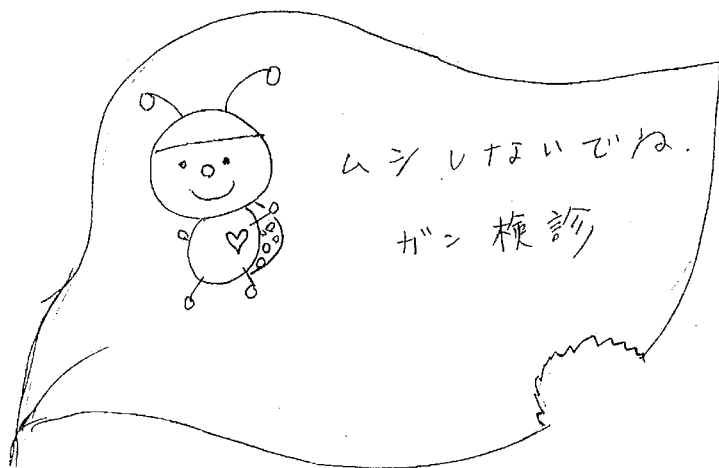 ムシしないでね.
ガン検診